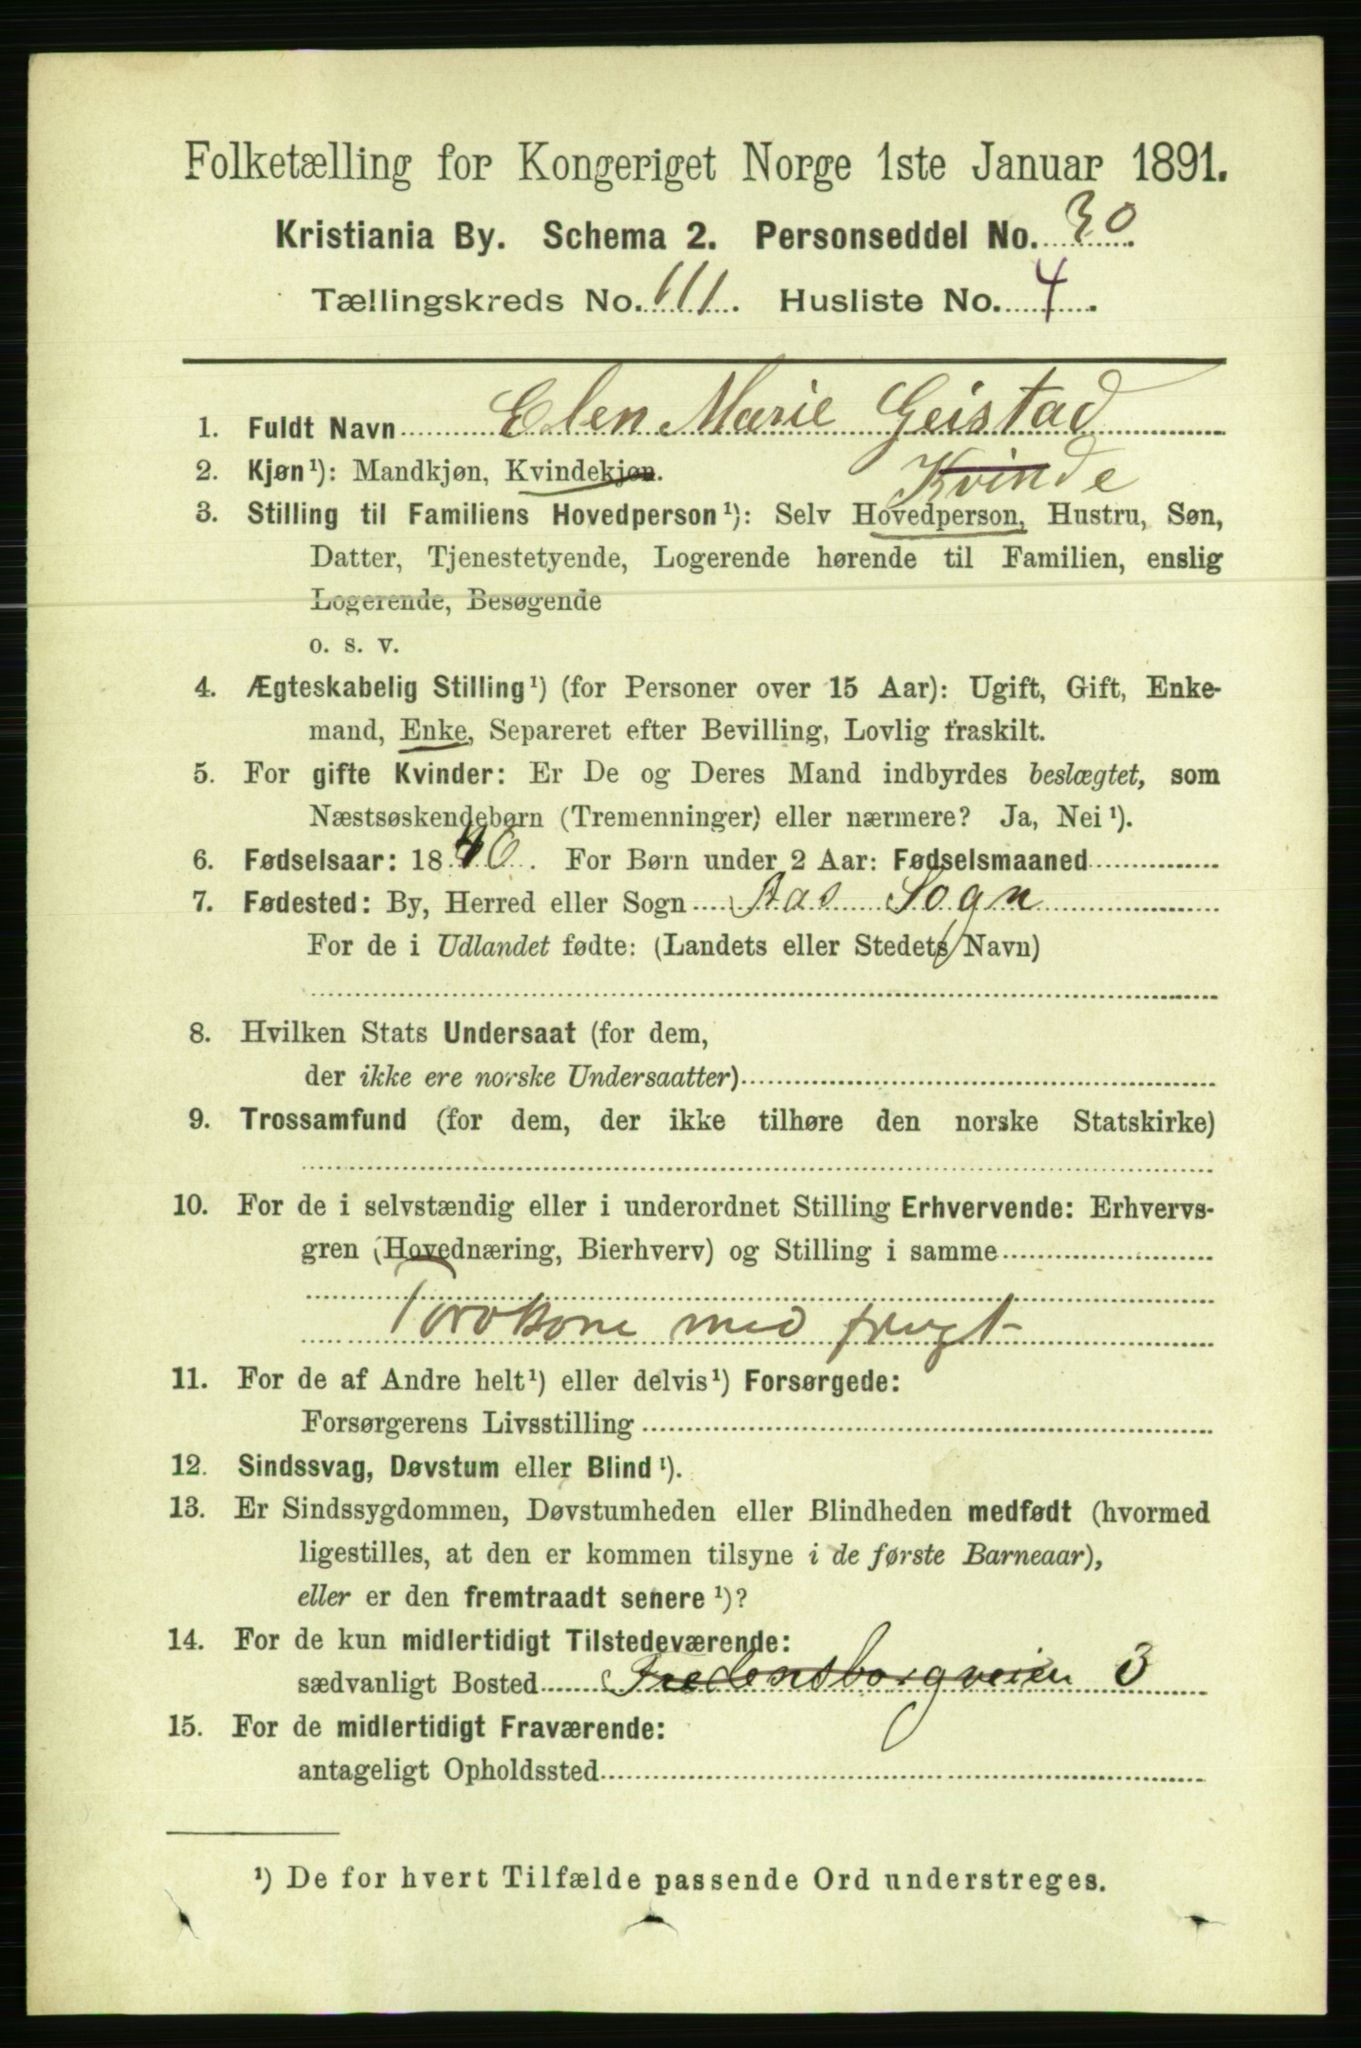 Folketælling for Kongeriget Norge 1ste Januar 1891.
Kristiania By. Schema 2. Personseddel No. 30.
Tællingskreds No. 111. Husliste No. 4.
1. Fuldt Navn Elen Marie Geistad
2. Kjøn¹): Mandkjøn, Kvindekjøn. Kvinde
3. Stilling til Familiens Hovedperson¹): Selv Hovedperson, Hustru, Søn,
Datter, Tjenestetyende, Logerende hørende til Familien, enslig
Logerende, Besøgende
o. s. v.
4. Ægteskabelig Stilling¹) (for Personer over 15 Aar): Ugift, Gift, Enke-
mand, Enke, Separeret efter Bevilling, Lovlig fraskilt.
5. For gifte Kvinder: Er De og Deres Mand indbyrdes beslægtet, som
Næstsøskendebørn (Tremenninger) eller nærmere? Ja, Nei¹).
6. Fødselsaar: 1840. For Børn under 2 Aar: Fødselsmaaned
7. Fødested: By, Herred eller Sogn Aas Sogn
For de i Udlandet fødte: (Landets eller Stedets Navn)
8. Hvilken Stats Undersaat (for dem,
der ikke ere norske Undersaatter)
9. Trossamfund (for dem, der ikke tilhøre den norske Statskirke)
10. For de i selvstændig eller i underordnet Stilling Erhvervende: Erhvervs-
gren (Hovednæring, Bierhverv) og Stilling i samme
Torvkone med frugt
11. For de af Andre helt¹) eller delvis¹) Forsørgede:
Forsørgerens Livsstilling
12. Sindssvag, Døvstum eller Blind¹).
13. Er Sindssygdommen, Døvstumheden eller Blindheden medfødt (hvormed
ligestilles, at den er kommen tilsyne i de første Barneaar),
eller er den fremtraadt senere¹)?
14. For de kun midlertidigt Tilstedeværende:
sædvanligt Bosted Fredensborgveien 3
15. For de midlertidigt Fraværende:
antageligt Opholdssted
¹) De for hvert Tilfælde passende Ord understreges.